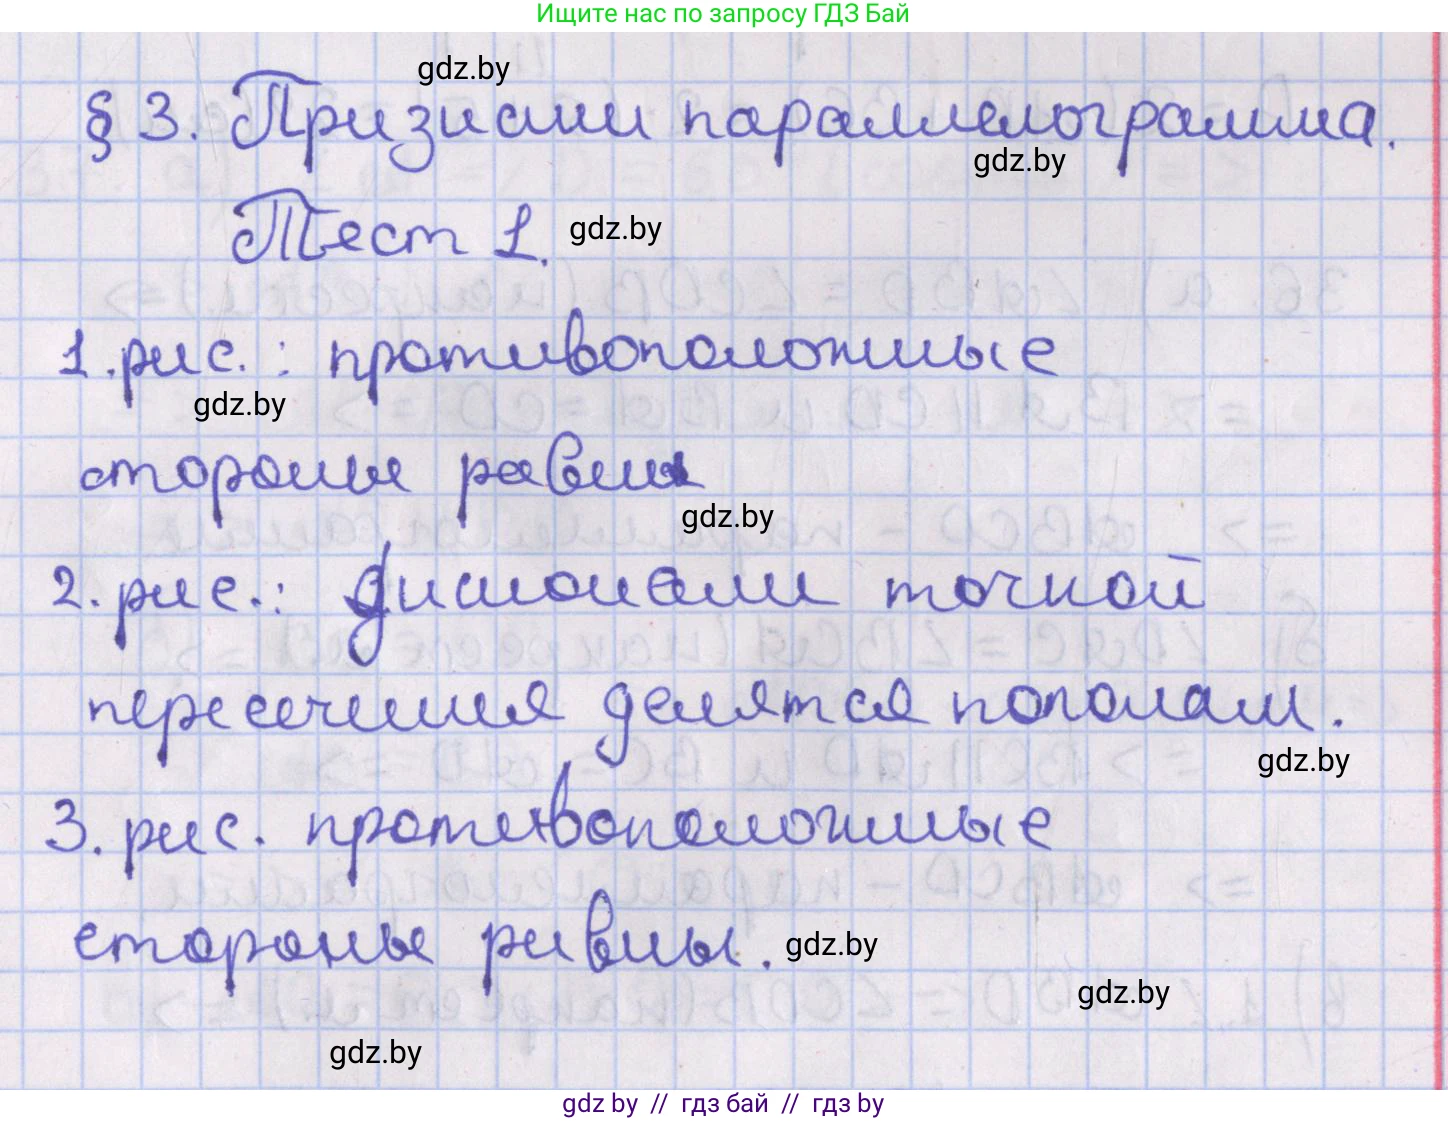 Ищите нас по запросу ГДЗ Бай
gdz.by
§ 3. Признаки параллелограмма.
gdz.by
Тест 1. gdz.by
1. рис. : противоположные
gdz.by
стороны равны
gdz.by
2. рис.: диагонали точкой
пересечения делятся пополам.
gdz.by
3. рис. противоположные
стороны равны. gdz.by
gdz.by
gdz.by
gdz by // гдз бай // гдз by